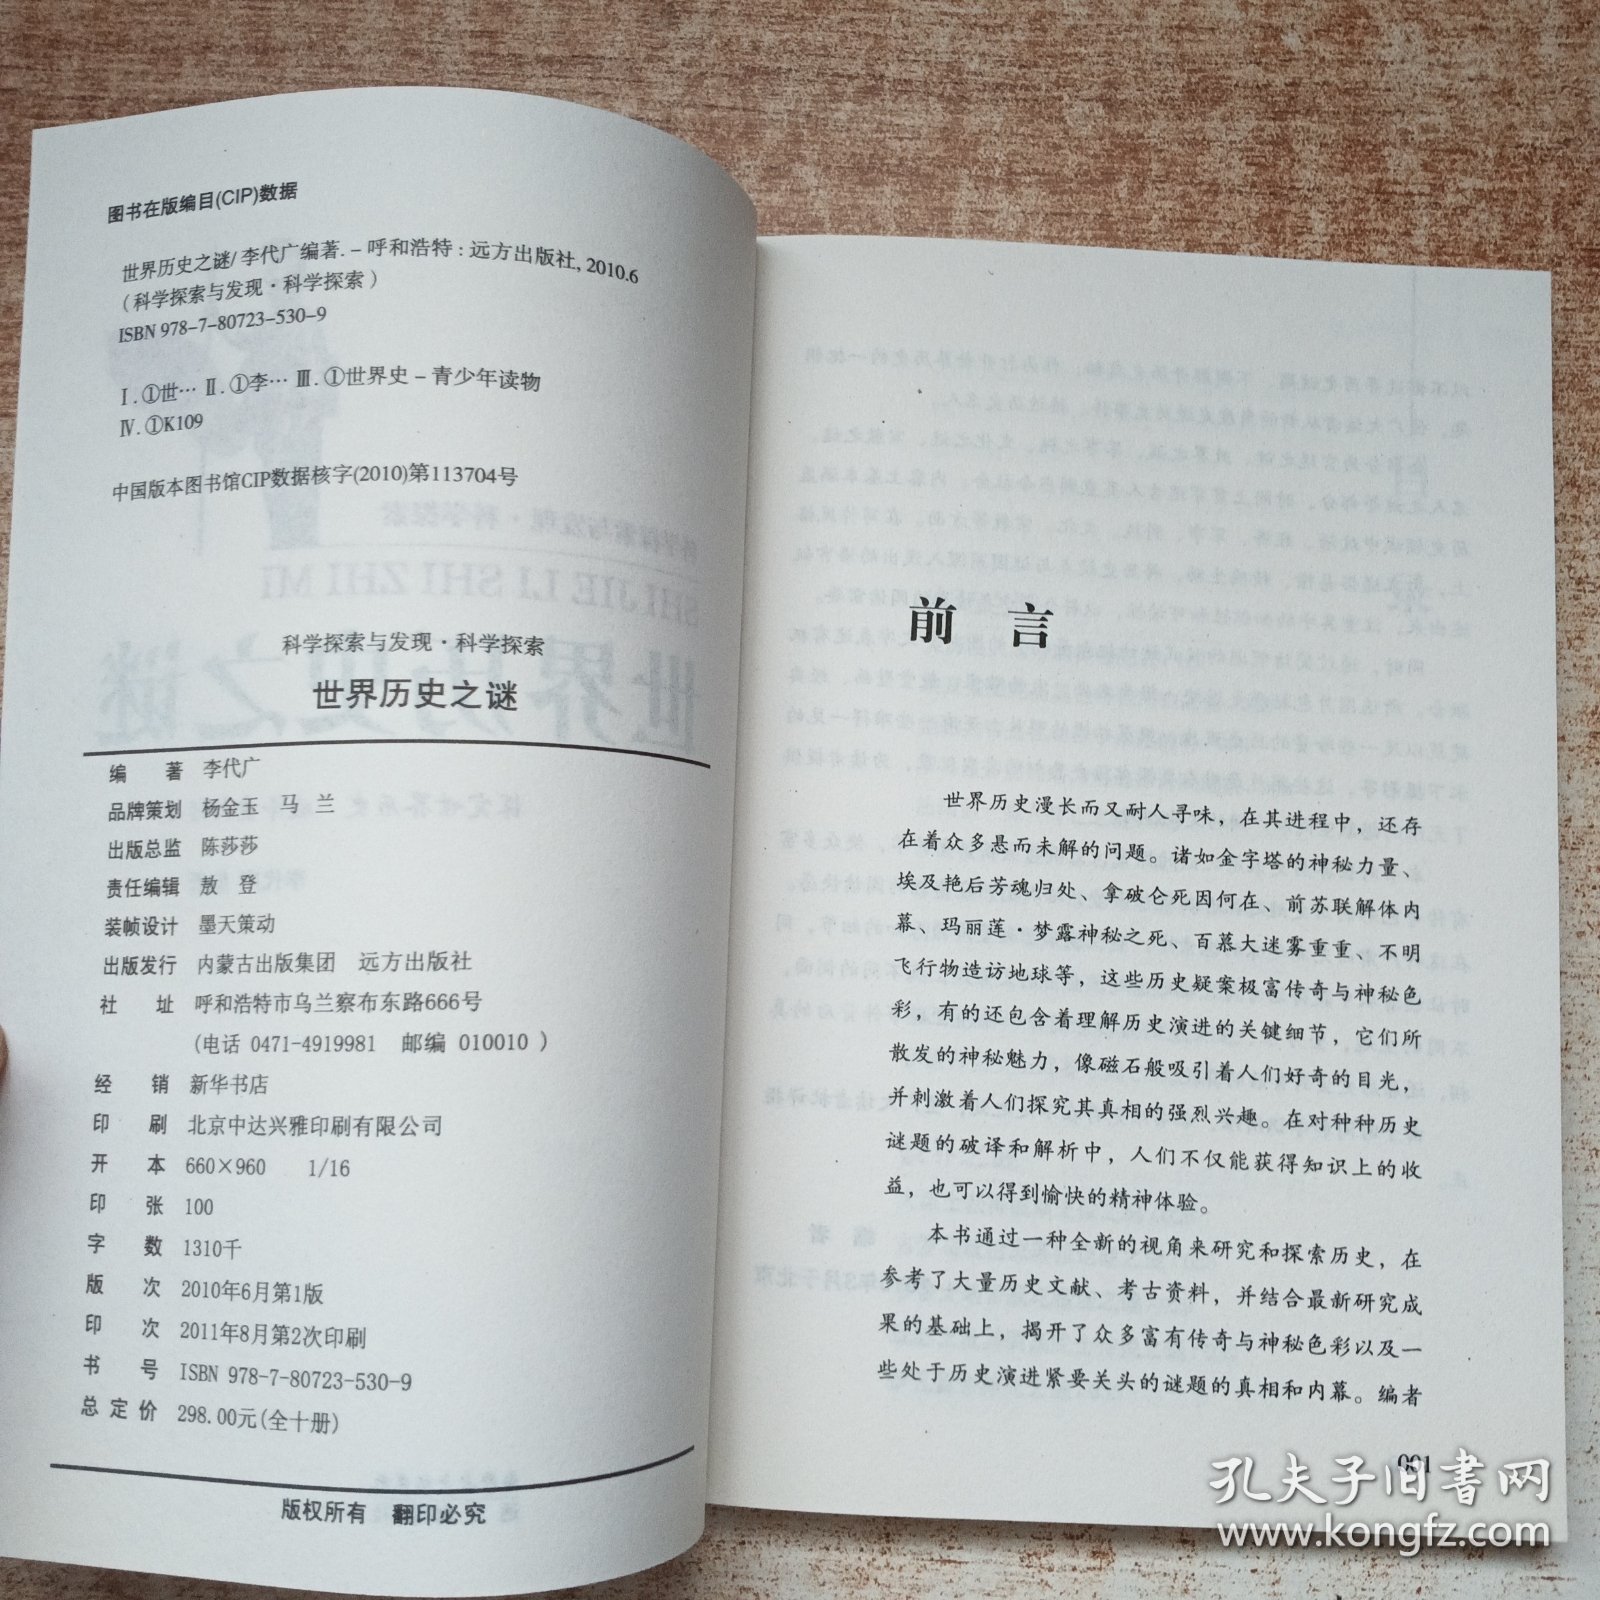 图书在版编目(CIP)数据
世界历史之谜/李代广编著.－呼和浩特：远方出版社,2010.6
（科学探索与发现·科学探索）
ISBN 978-7-80723-530-9
Ⅰ.①世… Ⅱ.①李… Ⅲ.①世界史－青少年读物
Ⅳ.①K109
中国版本图书馆CIP数据核字(2010)第113704号
科学探索与发现·科学探索
世界历史之谜
编 著 李代广
品牌策划 杨金玉 马 兰
出版总监 陈莎莎
责任编辑 敖 登
装帧设计 墨天策动
出版发行 内蒙古出版集团 远方出版社
社 址 呼和浩特市乌兰察布东路666号
(电话 0471-4919981 邮编 010010 )
经 销 新华书店
印 刷 北京中达兴雅印刷有限公司
开 本 660×960 1/16
印 张 100
字 数 1310千
版 次 2010年6月第1版
印 次 2011年8月第2次印刷
书 号 ISBN 978-7-80723-530-9
总 定 价 298.00元(全十册)
版权所有 翻印必究
前 言
世界历史漫长而又耐人寻味，在其进程中，还存
在着众多悬而未解的问题。诸如金字塔的神秘力量、
埃及艳后芳魂归处、拿破仑死因何在、前苏联解体内
幕、玛丽莲·梦露神秘之死、百慕大迷雾重重、不明
飞行物造访地球等，这些历史疑案极富传奇与神秘色
彩，有的还包含着理解历史演进的关键细节，它们所
散发的神秘魅力，像磁石般吸引着人们好奇的目光，
并刺激着人们探究其真相的强烈兴趣。在对种种历史
谜题的破译和解析中，人们不仅能获得知识上的收
益，也可以得到愉快的精神体验。
本书通过一种全新的视角来研究和探索历史，在
参考了大量历史文献、考古资料，并结合最新研究成
果的基础上，揭开了众多富有传奇与神秘色彩以及一
些处于历史演进紧要关头的谜题的真相和内幕。编者
001
孔夫子旧书网
www.kongfz.com